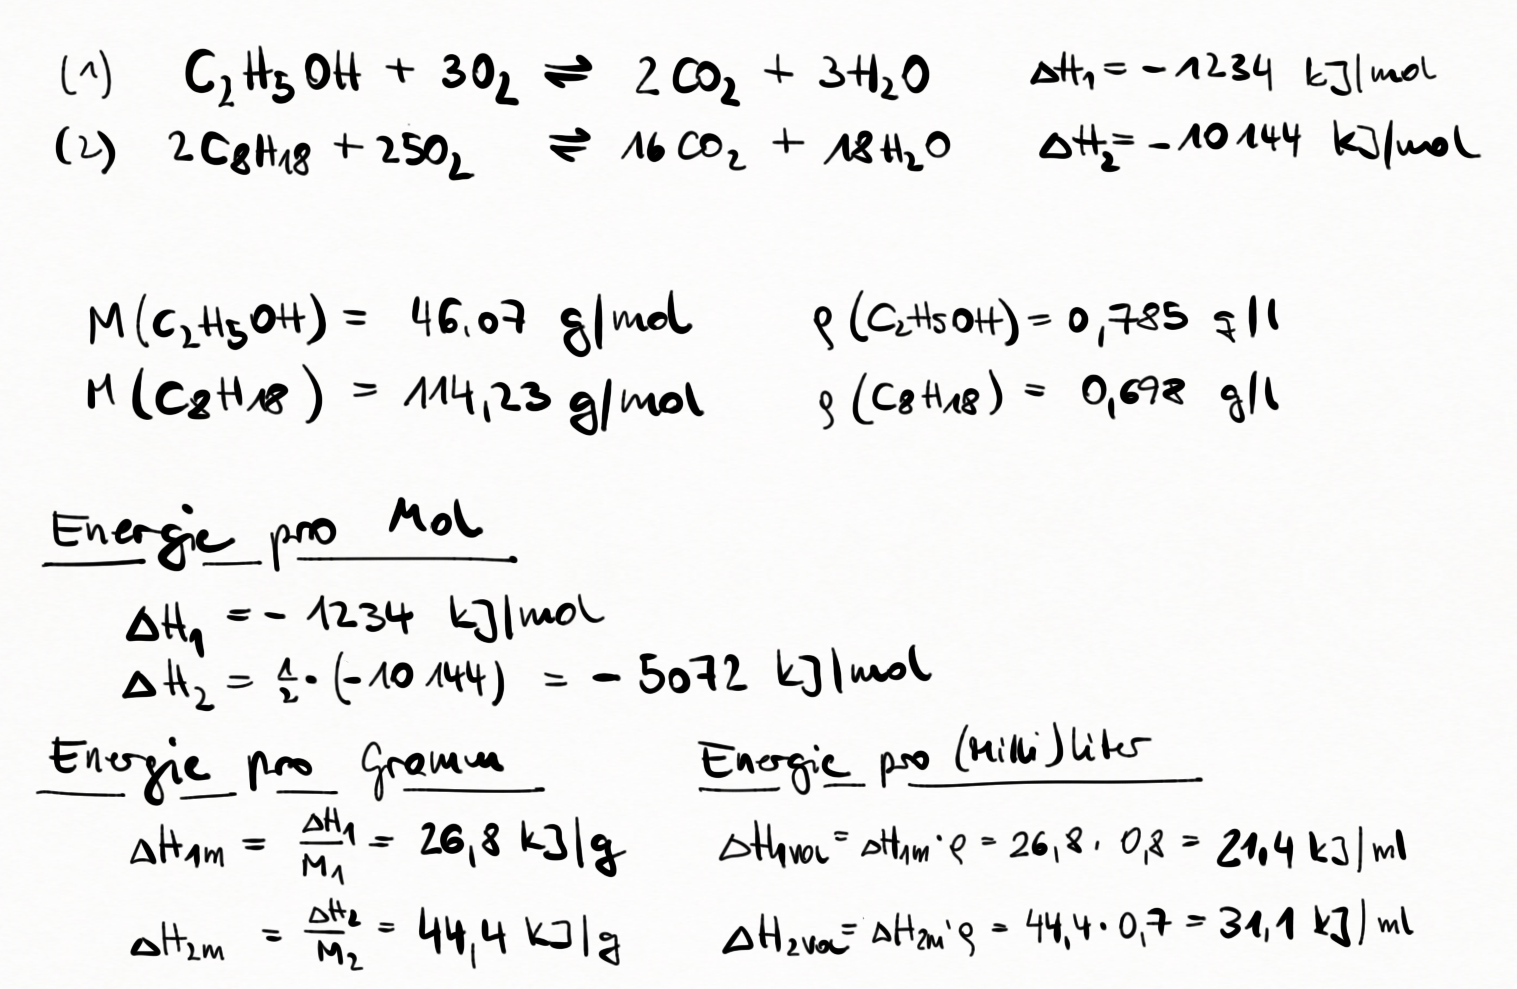 (1) C₂H₅OH + 3O₂ ⇌ 2CO₂ + 3H₂O ΔH₁ = -1234 kJ/mol
(2) 2C₈H₁₈ + 25O₂ ⇌ 16CO₂ + 18H₂O ΔH₂ = -10 144 kJ/mol
M(C₂H₅OH) = 46.07 g/mol ρ(C₂H₅OH) = 0,785 g/l
M(C₈H₁₈) = 114,23 g/mol ρ(C₈H₁₈) = 0,698 g/l
Energie pro Mol
ΔH₁ = - 1234 kJ/mol
ΔH₂ = ½ · (-10 144) = - 5072 kJ/mol
Energie pro Gramm
ΔH₁m = ΔH₁/M₁ = 26,8 kJ/g
ΔH₂m = ΔH₂/M₂ = 44,4 kJ/g
Energie pro (Milli)liter
ΔH₁vol = ΔH₁m · ρ = 26,8 · 0,8 = 21,4 kJ/ml
ΔH₂vol = ΔH₂m · ρ = 44,4 · 0,7 = 31,1 kJ/ml